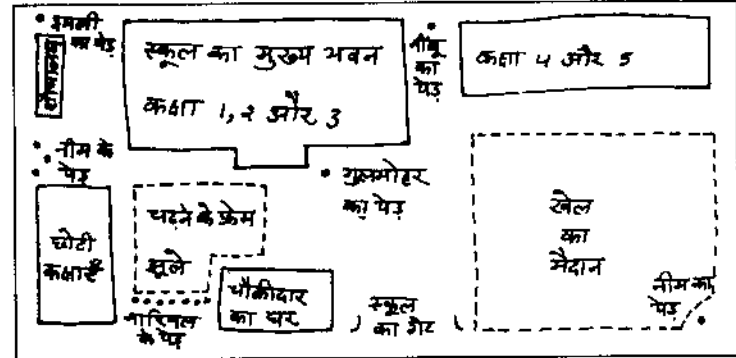 इमली
का पेड़
शौचालय
स्कूल का मुख्य भवन
कक्षा 1, 2 और 3
नींबू
का
पेड़
कक्षा 4 और 5
नीम के
पेड़
गुलमोहर
का पेड़
छोटी
कक्षाएँ
चढ़ने के फ्रेम
झूले
खेल
का
मैदान
नारियल
के पेड़
चौकीदार
का घर
स्कूल
का गेट
नीम का
पेड़